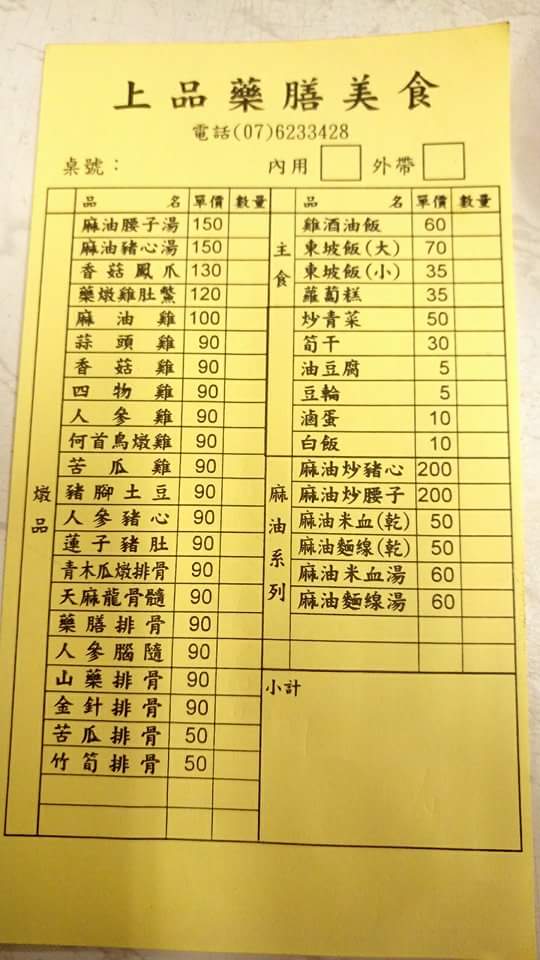 上品藥膳美食
電話(07)6233428
桌號： 內用 外帶
品名 單價 數量
燉品
麻油腰子湯 150
麻油豬心湯 150
香菇鳳爪 130
藥燉雞肚鱉 120
麻油雞 100
蒜頭雞 90
香菇雞 90
四物雞 90
人參雞 90
何首烏燉雞 90
苦瓜雞 90
豬腳土豆 90
人參豬心 90
蓮子豬肚 90
青木瓜燉排骨 90
天麻龍骨髓 90
藥膳排骨 90
人參腦隨 90
山藥排骨 90
金針排骨 90
苦瓜排骨 50
竹筍排骨 50
品名 單價 數量
主食
雞酒油飯 60
東坡飯(大) 70
東坡飯(小) 35
蘿蔔糕 35
炒青菜 50
筍干 30
油豆腐 5
豆輪 5
滷蛋 10
白飯 10
麻油系列
麻油炒豬心 200
麻油炒腰子 200
麻油米血(乾) 50
麻油麵線(乾) 50
麻油米血湯 60
麻油麵線湯 60
小計